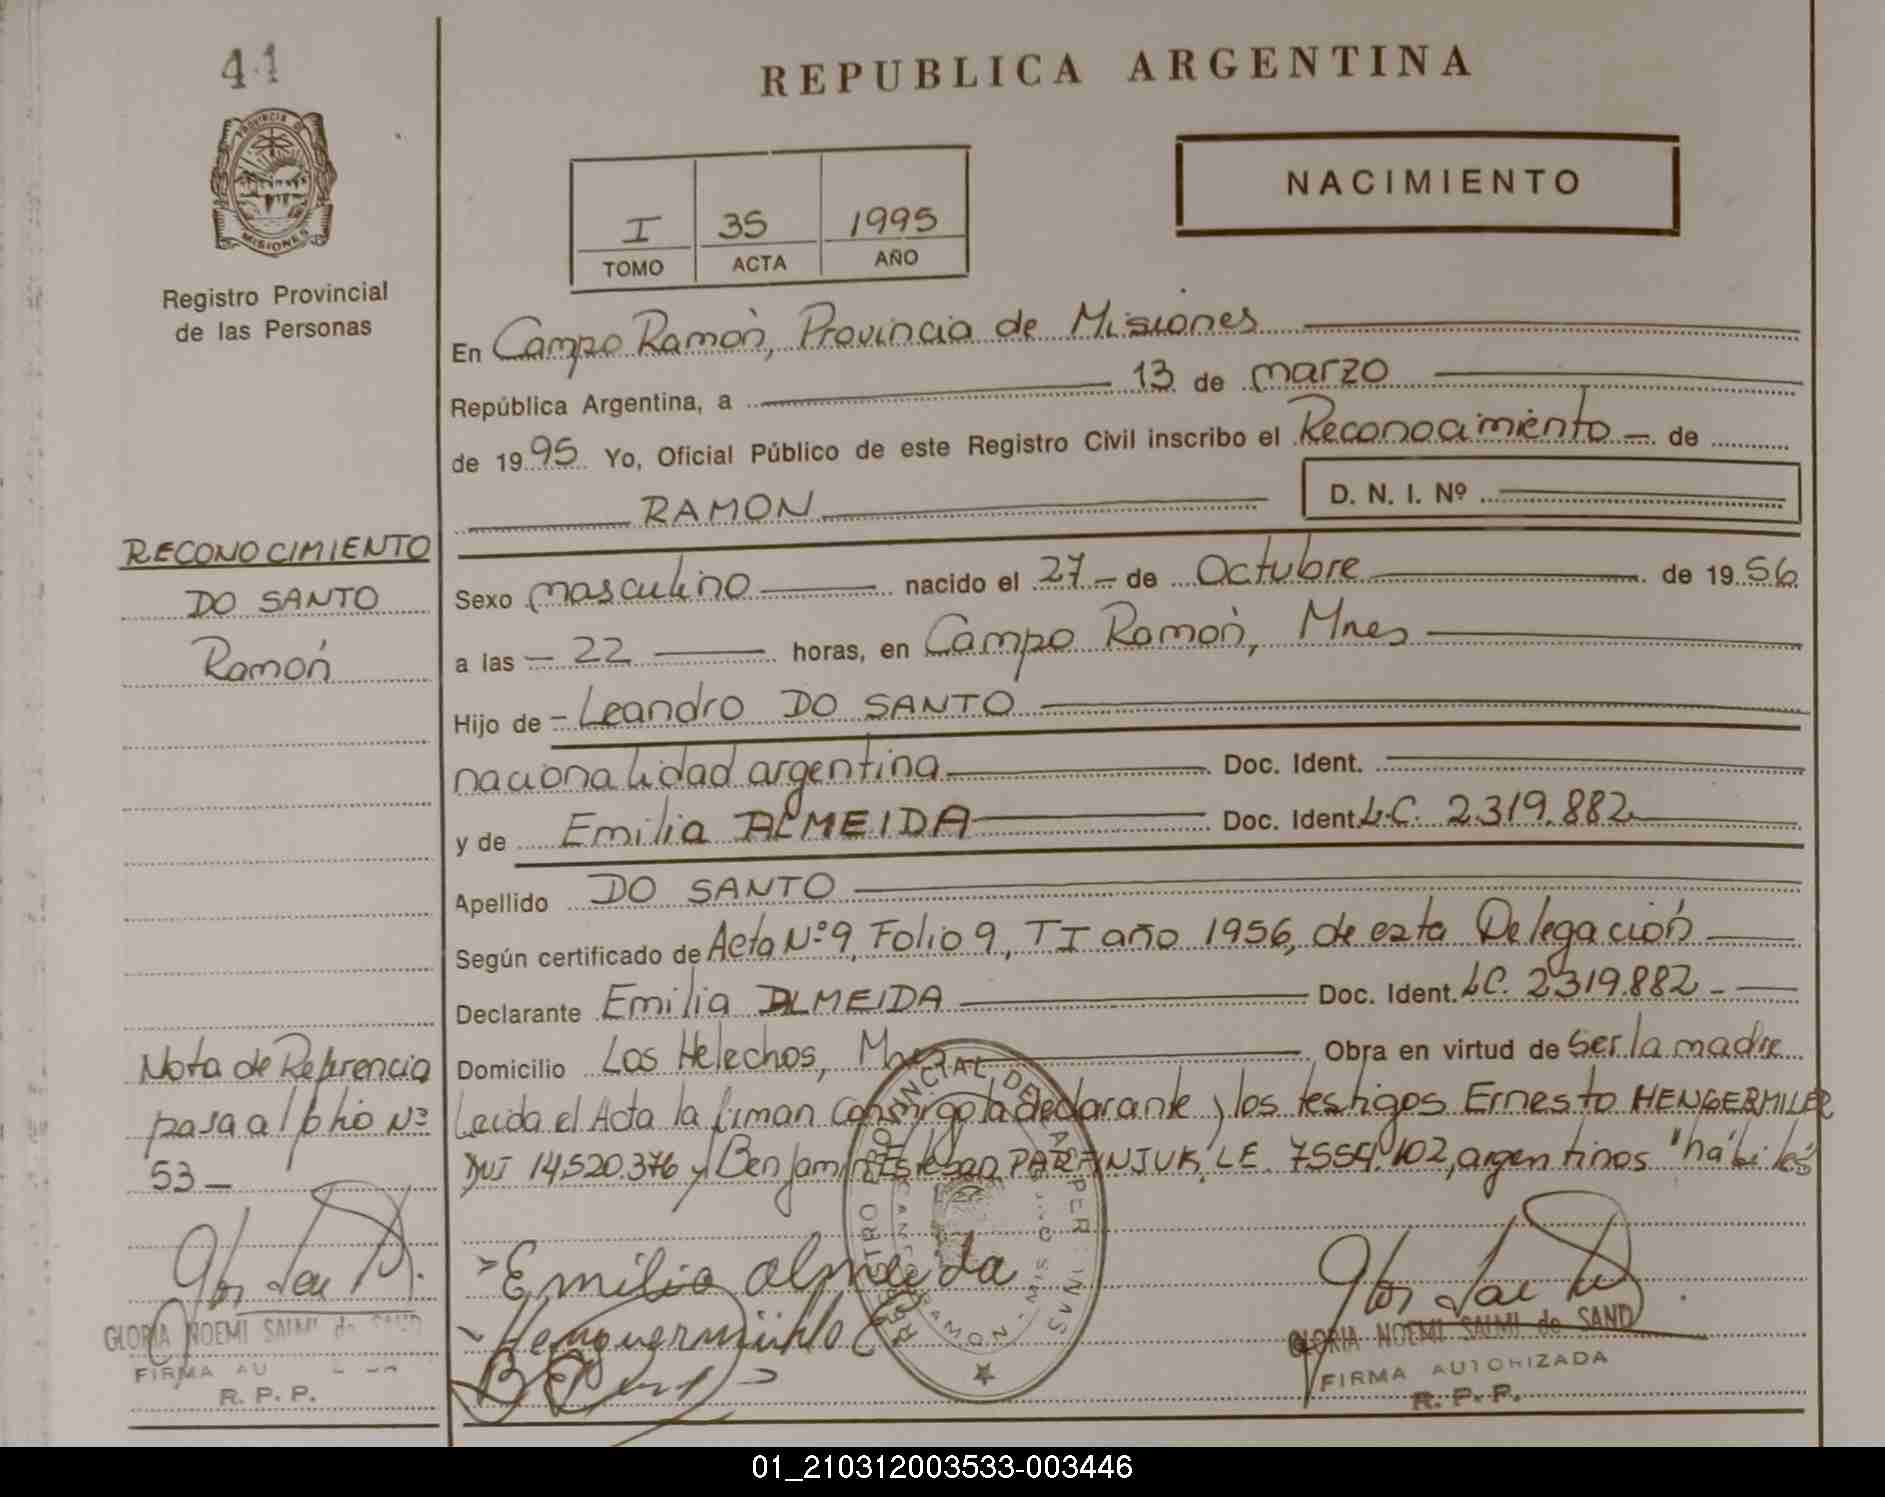 41
REPUBLICA ARGENTINA
PROVINCIA DE
MISIONES
NACIMIENTO
I 35 1995
TOMO ACTA AÑO
Registro Provincial
de las Personas
En Campo Ramón, Provincia de Misiones
República Argentina, a 13 de marzo
de 1995 Yo, Oficial Público de este Registro Civil inscribo el Reconocimiento de
RAMON D. N. I. Nº
RECONOCIMIENTO
DO SANTO
Ramón
Sexo masculino nacido el 27 de Octubre de 1956
a las 22 horas, en Campo Ramón, Mnes
Hijo de Leandro DO SANTO
nacionalidad argentina Doc. Ident.
y de Emilia ALMEIDA Doc. Ident. L.C. 2.319.882
Apellido DO SANTO
Según certificado de Acta Nº 9, Folio 9, TI año 1956, de esta Delegación
Declarante Emilia ALMEIDA Doc. Ident. LC. 2319.882
Domicilio Los Helechos, Mnes Obra en virtud de Ser la madre
Leida el Acta la firman Conmigo la declarante y los testigos Ernesto HENGERMILER
DNI 14.520.376 y Benjamin Esteban PARFINJUK, LE 7.554.102, argentinos "hábiles"
Nota de Referencia
pasa al folio Nº
53
Emilia almeida
REGISTRO PROVINCIAL DE LAS PERSONAS
RAMON
GLORIA NOEMI SALMI de SAND
FIRMA AUTORIZADA
R. P. P.
GLORIA NOEMI SALMI de SAND
FIRMA AU
R. P. P.
01_210312003533-003446